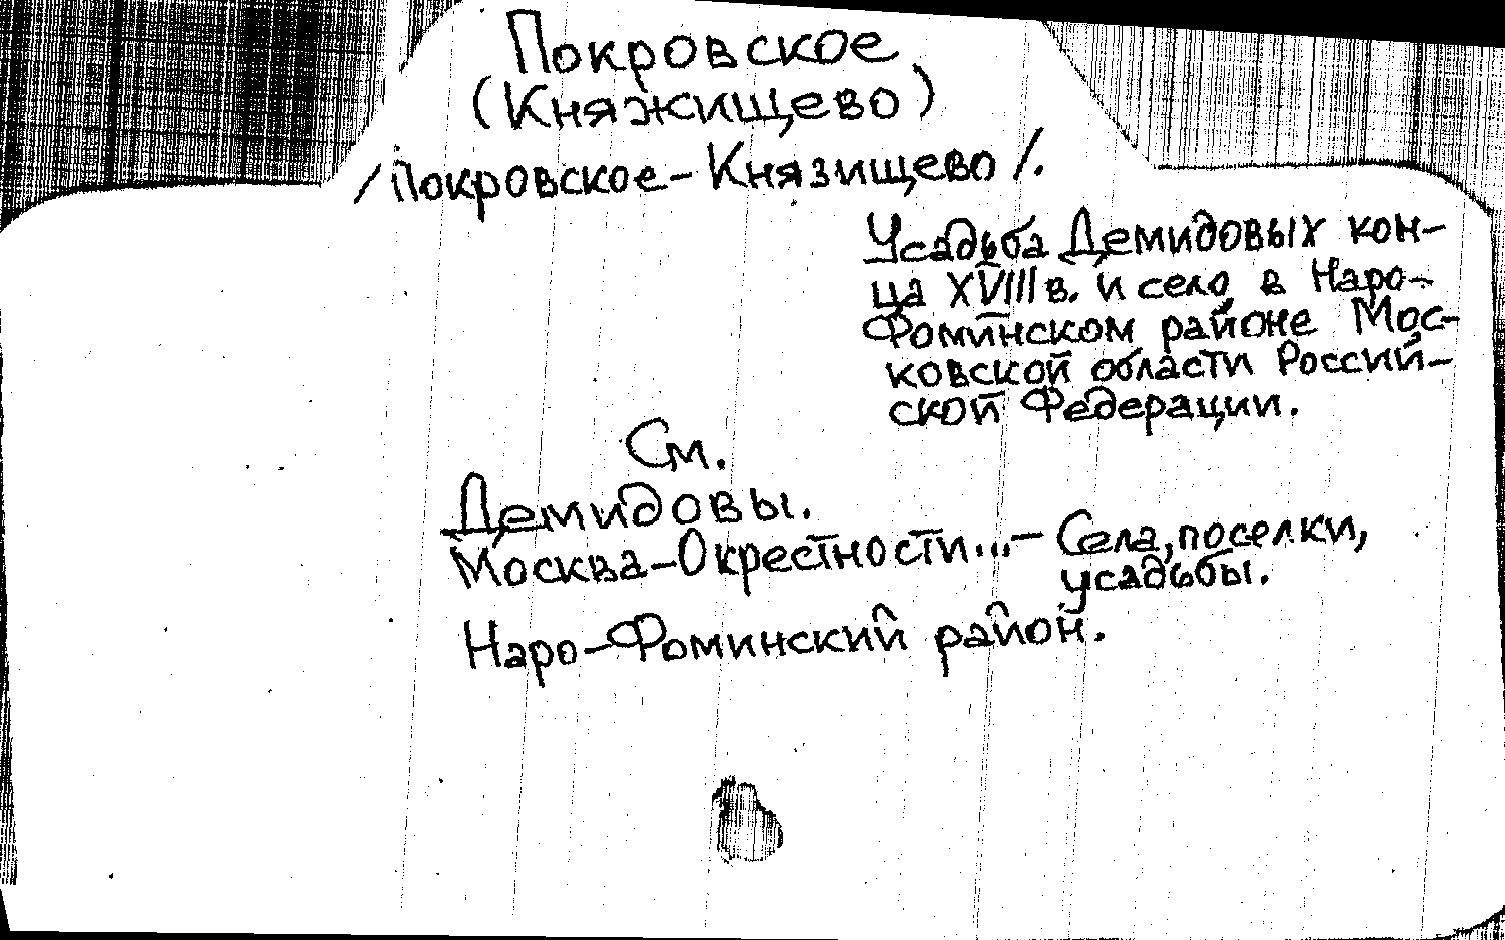 Покровское
(Княжищево)
/Покровское-Князищево/.
Усадьба Демидовых кон-
ца XVIII в. и село, в Наро-
Фоминском районе Мос-
ковской области Россий-
ской Федерации.
См.
Демидовы.
Москва-Окрестности...- Села, поселки,
усадьбы.
Наро-Фоминский район.